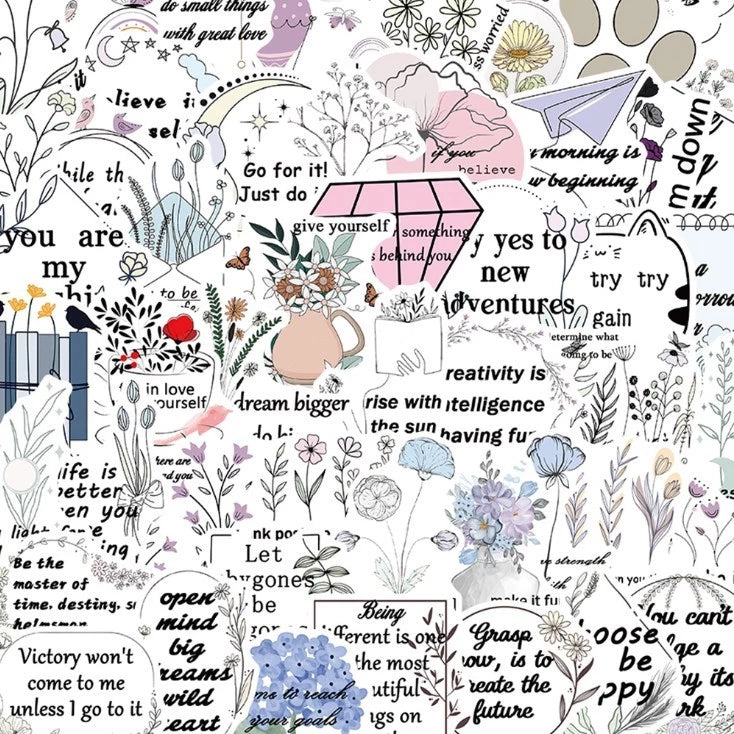 do small things
with great love
ss worried
it
lieve
sel
while th
Go for it!
Just do
if you
believe
morning is
w beginning
m down
you are
my
to be
give yourself
something
behind you
y yes to
new
dventures
try try
gain
etermine what
going to be
in love
yourself
dream bigger
rise with
the sun
reativity is
ntelligence
having fu
life is
better
en you
here are
Be the
master of
time, destiny,
helmsman
Let
bygones
be
open
mind
big
reams
wild
eart
Victory won't
come to me
unless I go to it
me to reach
your goals
Being
fferent is one
the most
utiful
gs on
ve strength
make it fu
Grasp
ow, is to
reate the
future
oose
be
ppy
You can't
ge a
by its